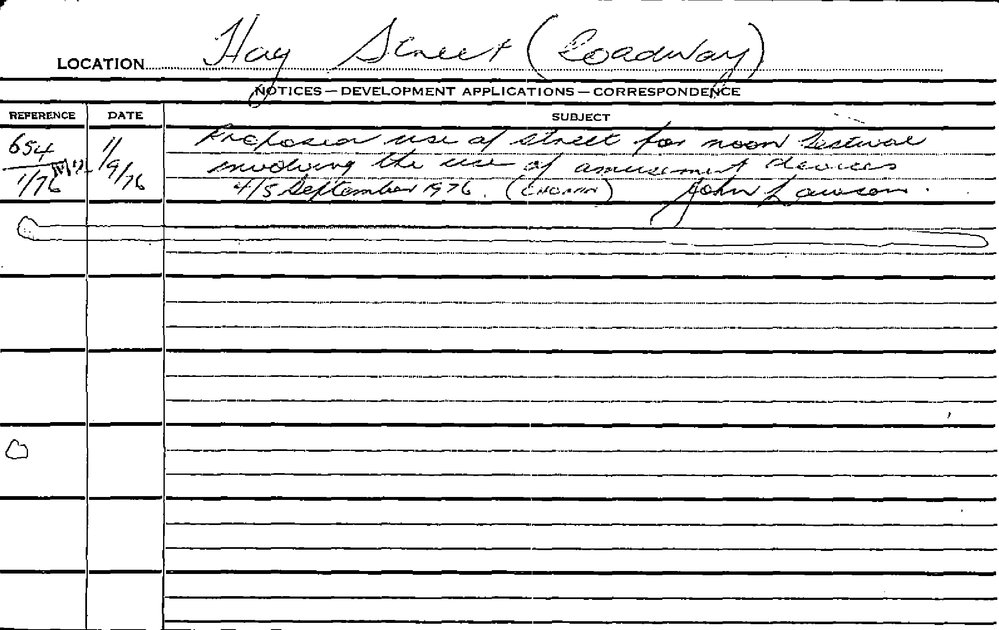 LOCATION Hay Street (Roadway)
NOTICES — DEVELOPMENT APPLICATIONS — CORRESPONDENCE
REFERENCE DATE SUBJECT
654 1/76 1/9/76 Proposed use of street for moon festival
involving the use of amusement devices
4/5 September 1976. John Lawson.